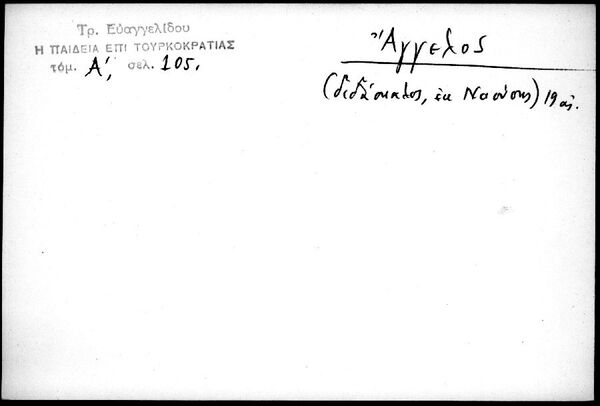 Τρ. Εὐαγγελίδου
Η ΠΑΙΔΕΙΑ ΕΠΙ ΤΟΥΡΚΟΚΡΑΤΙΑΣ
τόμ. Α', σελ. 105.
Ἄγγελος
(διδάσκαλος, ἐκ Ναούσης) 19 αἰ.